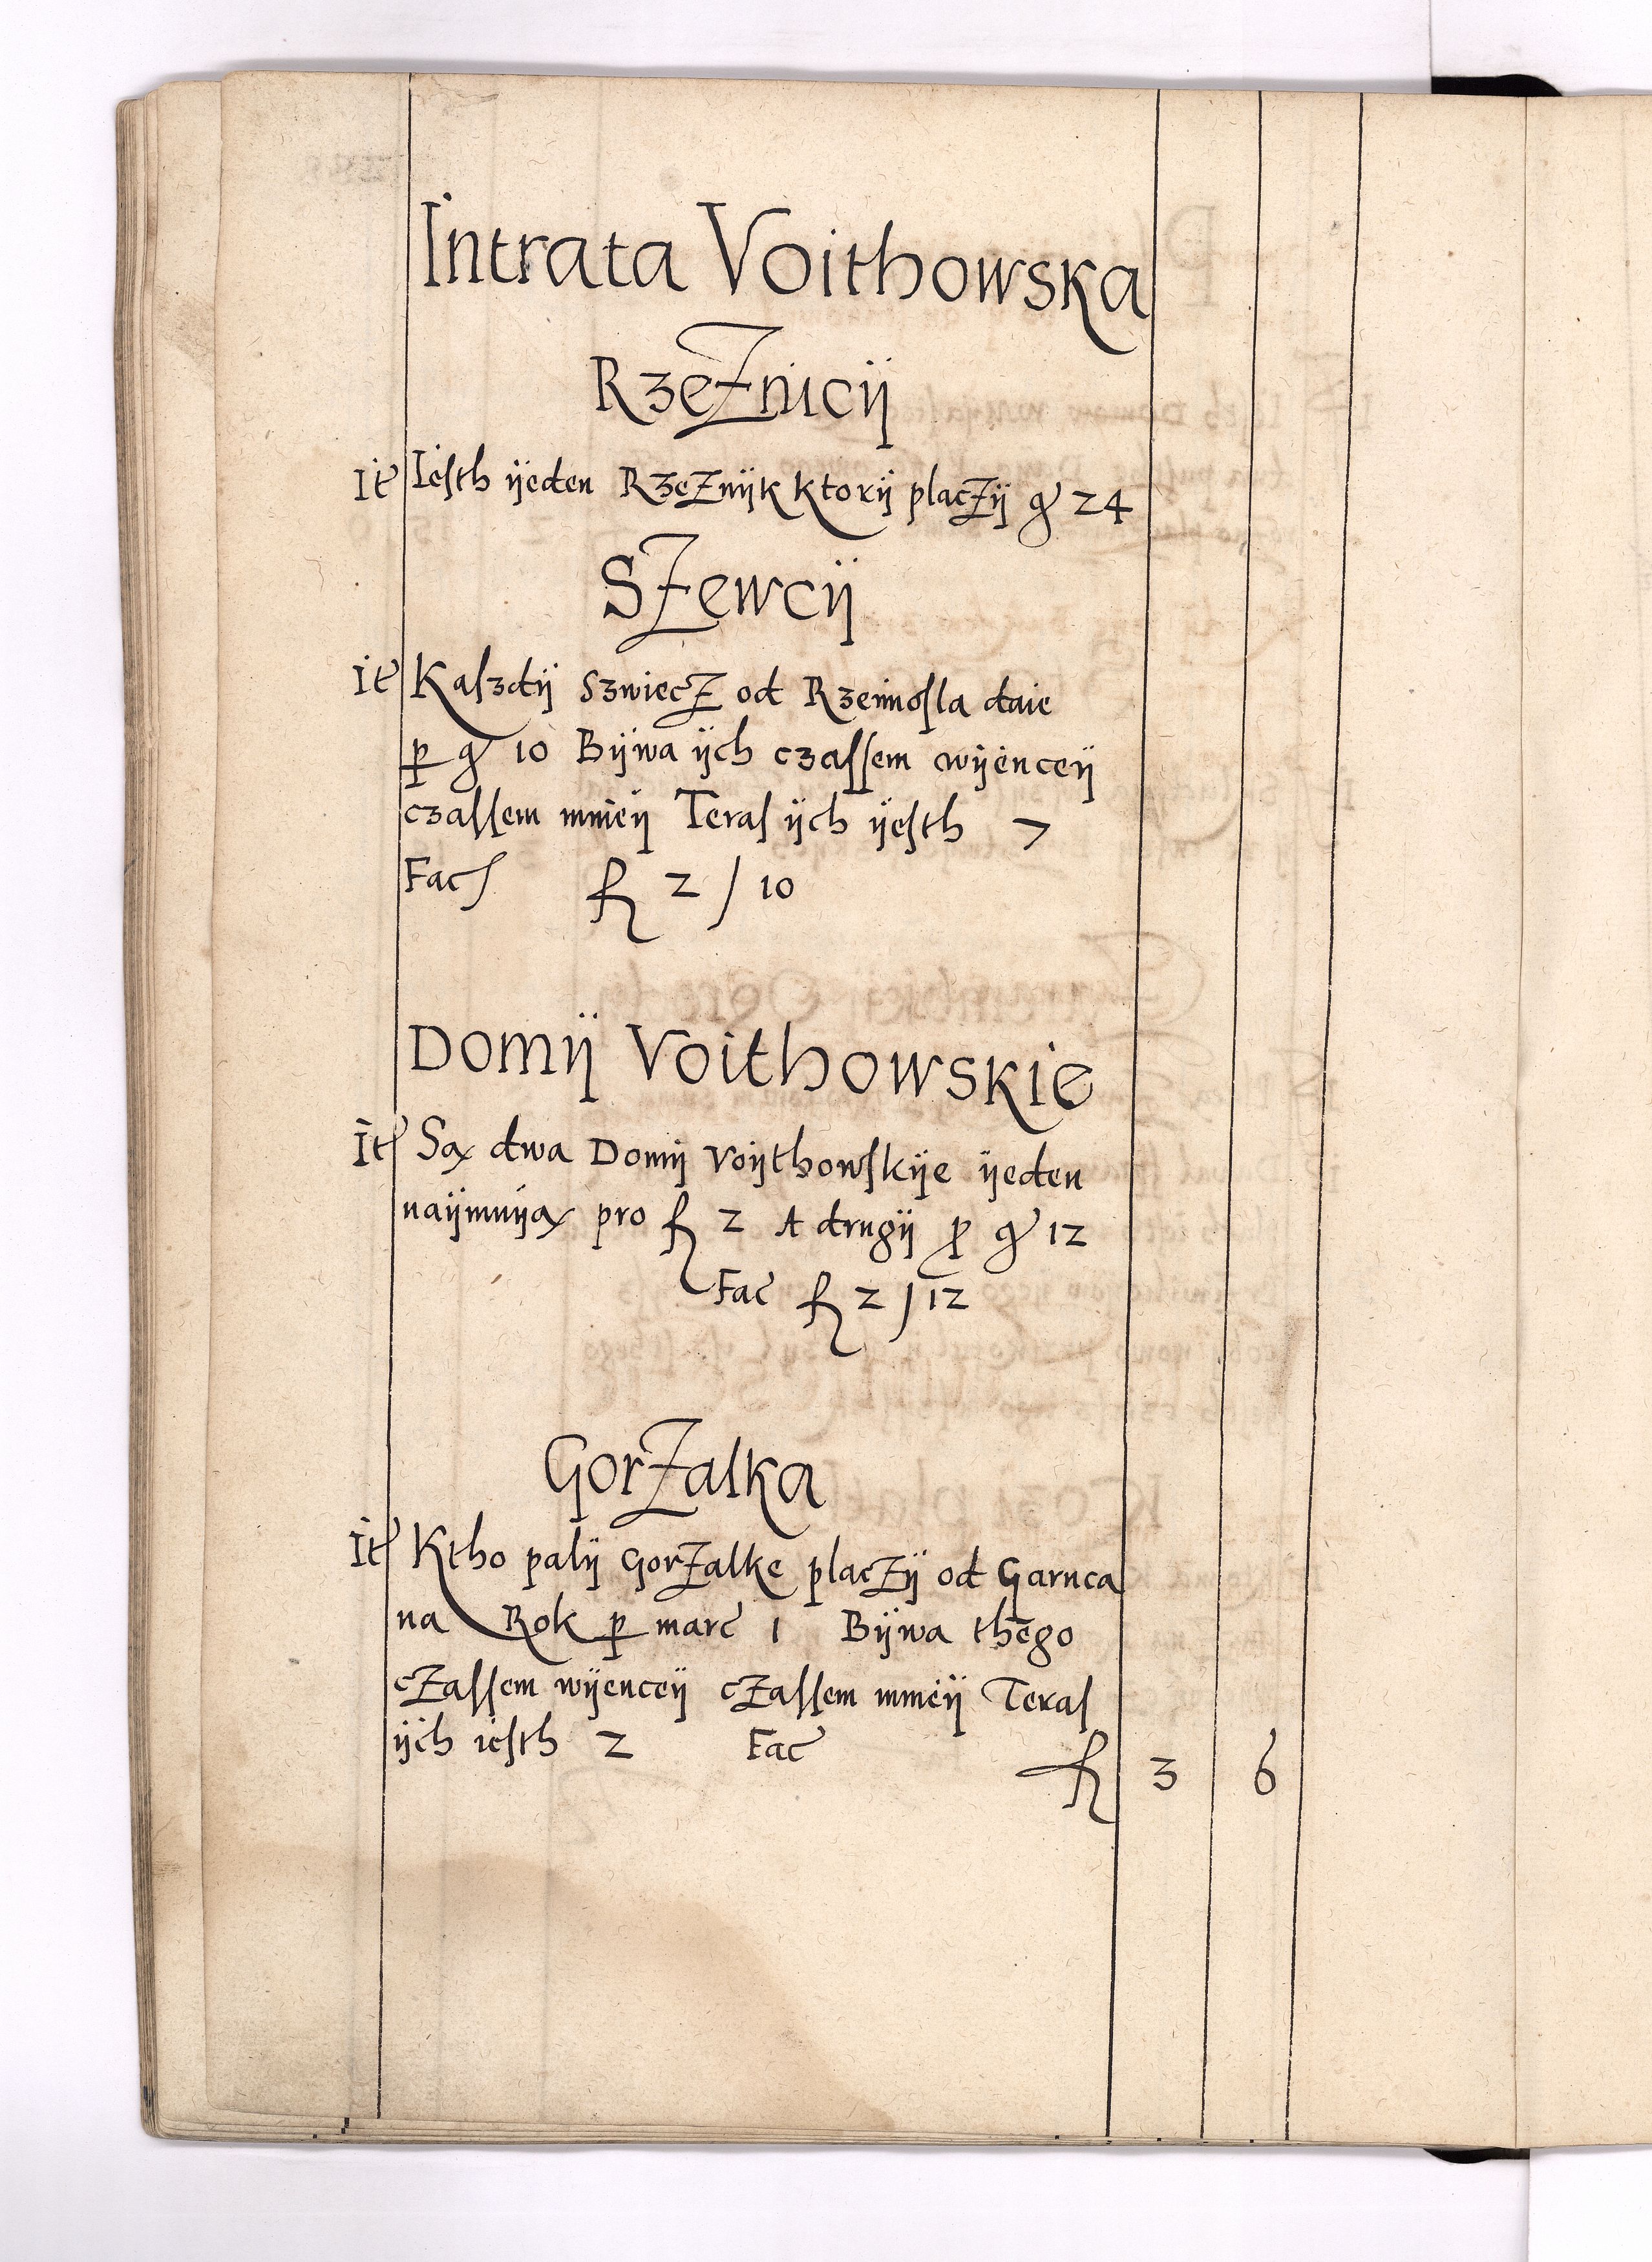 Intrata Voithowska
RzeZnicÿ
It Iesth ÿeden RzeZnÿk Ktorÿ placZÿ gr 24
SZewcÿ
It Kaszdÿ szwiecZ od Rzemosla daie
per gr 10 Bÿwa ÿch czassem wÿenceÿ
czassem mnieÿ Teras ÿch ÿesth 7
Fac fl 2 / 10
Domÿ Voithowskie
It Są dwa Domÿ Voÿthowskÿe ÿeden
naÿmuÿą pro fl 2 A drugÿ pro gr 12
Fac fl 2 / 12
GorZalka
It Ktho palÿ GorZalke placZÿ od Garnca
na Rok per marc 1 Bÿwa thego
cZassem wÿenceÿ cZassem mnieÿ Teras
ÿch iesth 2 Fac
fl 3 6